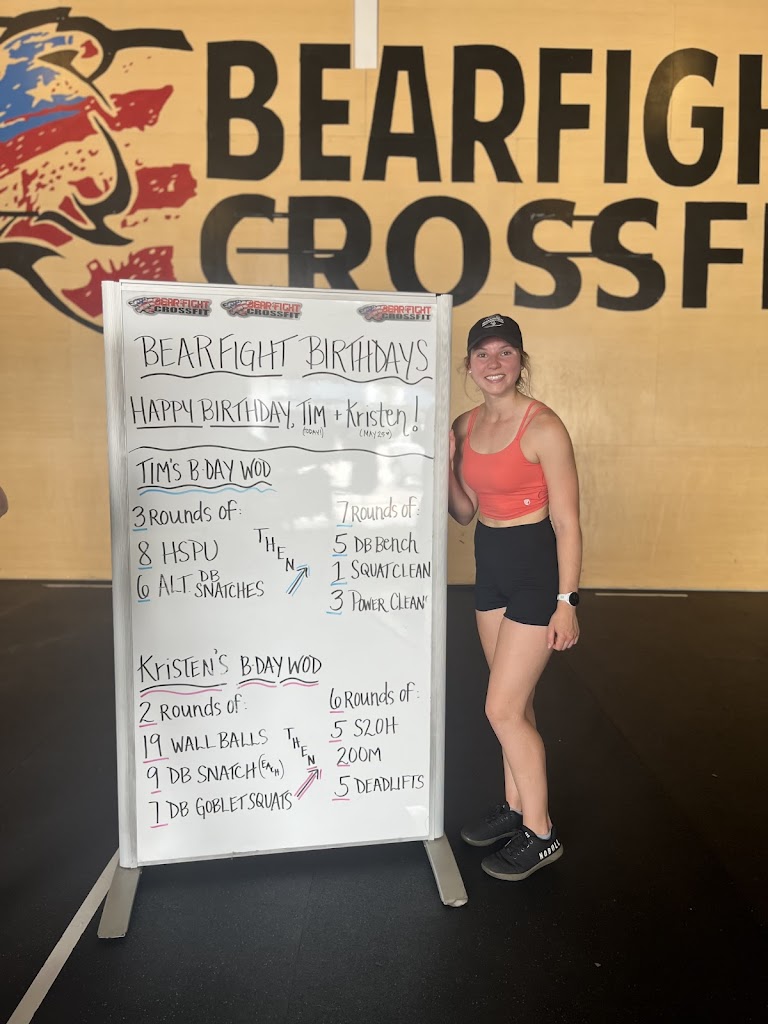 BEARFIGH
CROSSFI
BEARFIGHT CROSSFIT
BEARFIGHT CROSSFIT
BEARFIGHT CROSSFIT
BEARFIGHT BIRTHDAYS
HAPPY BIRTHDAY, TIM + Kristen!
(TODAY!)
TIM'S B-DAY WOD
3 Rounds of:
8 HSPU
6 ALT. DB SNATCHES
THEN
7 Rounds of:
5 DB Bench
1 SQUAT CLEAN
3 POWER CLEAN
KRISTEN'S B-DAY WOD
2 Rounds of:
19 WALL BALLS
9 DB SNATCH (EACH)
7 DB GOBLET SQUATS
THEN
6 Rounds of:
5 S2OH
200M
5 DEADLIFTS
NOBULL